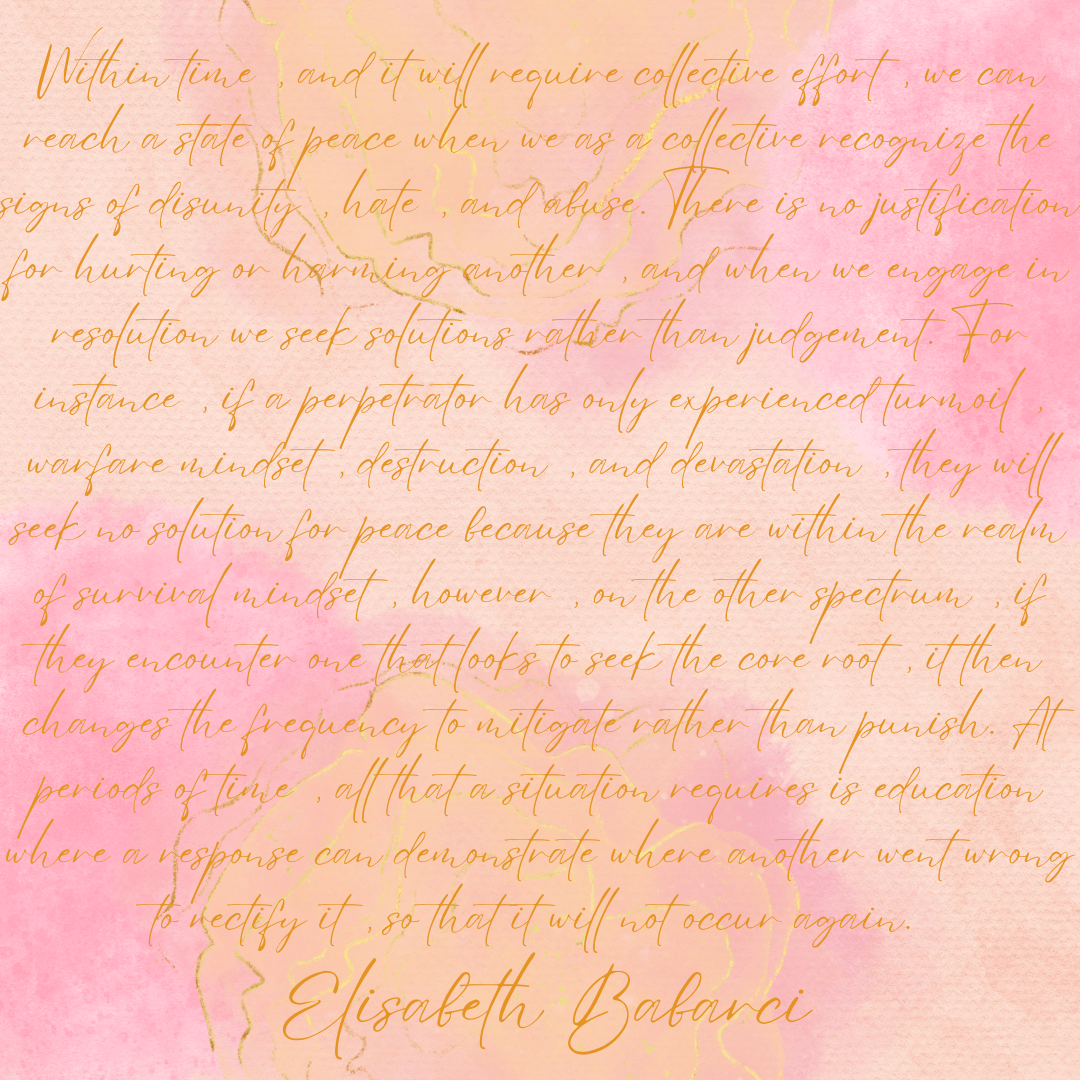 Within time , and it will require collective effort , we can
reach a state of peace when we as a collective recognize the
signs of disunity , hate , and abuse. There is no justification
for hurting or harming another , and when we engage in
resolution we seek solutions rather than judgement. For
instance , if a perpetrator has only experienced turmoil ,
warfare mindset , destruction , and devastation , they will
seek no solution for peace because they are within the realm
of survival mindset , however , on the other spectrum , if
they encounter one that looks to seek the core root , it then
changes the frequency to mitigate rather than punish. At
periods of time , all that a situation requires is education
where a response can demonstrate where another went wrong
to rectify it , so that it will not occur again.
Elisabeth Babarci